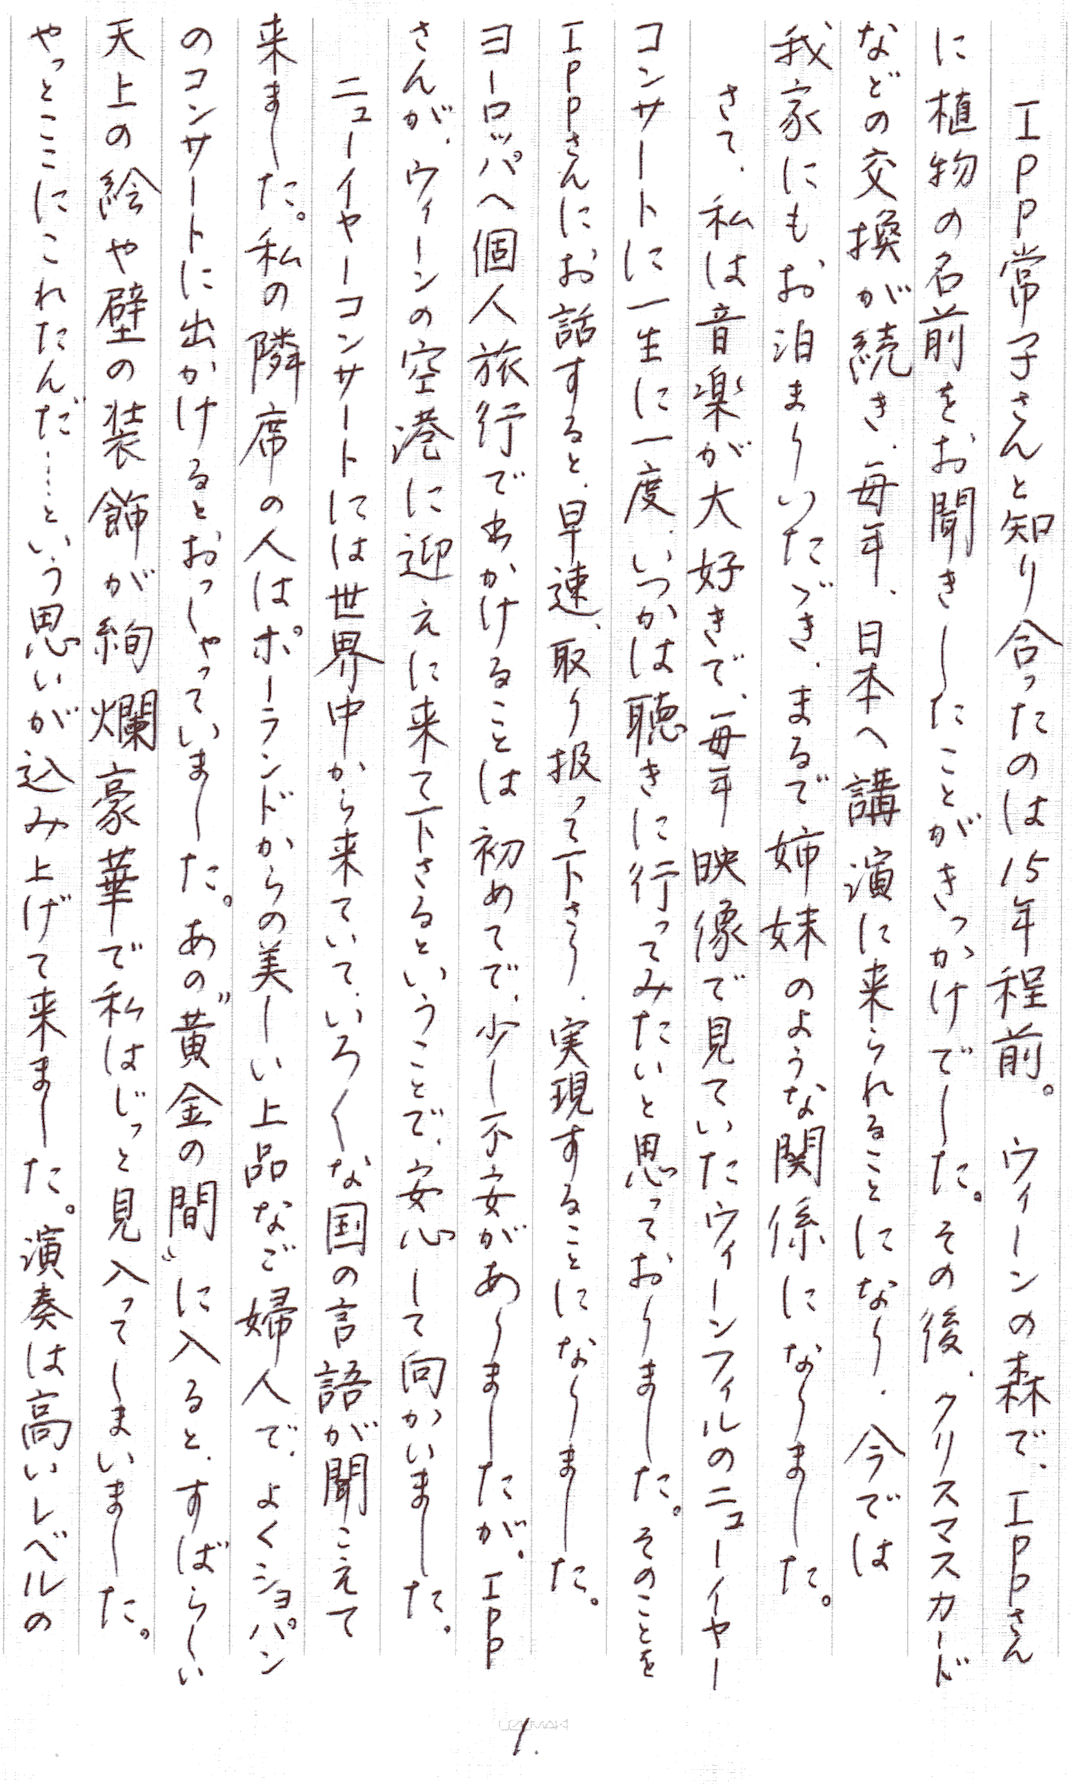 IPP常子さんと知り合ったのは15年程前。ウィーンの森で、IPPさん
に植物の名前をお聞きしたことがきっかけでした。その後、クリスマスカード
などの交換が続き、毎年、日本へ講演に来られることになり、今では
我家にもお泊まりいたゞき、まるで姉妹のような関係になりました。
さて、私は音楽が大好きで、毎年映像で見ていたウィーンフィルのニューイヤー
コンサートに一生に一度、いつかは聴きに行ってみたいと思っておりました。そのことを
IPPさんにお話すると、早速、取り扱って下さり、実現することになりました。
ヨーロッパへ個人旅行で出かけることは初めてで、少し不安がありましたが、IPP
さんが、ウィーンの空港に迎えに来て下さるということで、安心して向かいました。
ニューイヤーコンサートには世界中から来ていて、いろ〱な国の言語が聞こえて
来ました。私の隣席の人はポーランドからの美しい上品なご婦人で、よくショパン
のコンサートに出かけるとおっしゃっていました。あの〝黄金の間〟に入ると、すばらしい
天上の絵や壁の装飾が絢爛豪華で私はじっと見入ってしまいました。
やっとここにこれたんだ……という思いが込み上げて来ました。演奏は高いレベルの
1.
UZUMAKI